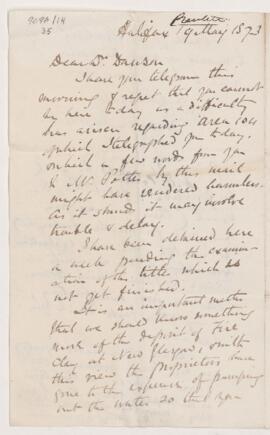 909A/14
35
Private
Halifax 19 May 1873
Dear Dr. Dawson
I have your telegram this
morning & regret that you cannot
be here to day as a difficulty
has arisen regarding area 604
which I telegraphed you to day.
on which a few words from you
to Mr. by this mail
might have rendered harmless.
As it stands it may involve
trouble & delay.
I have been detained here
a week pending the examin-
ation of the titles which is
not yet finished.
It is an important matter
that we should know something
more of the deposit of Fire
Clay at New Glasgow, & with
this view the proprietors have
gone to the expense of pumping
out the water so that you